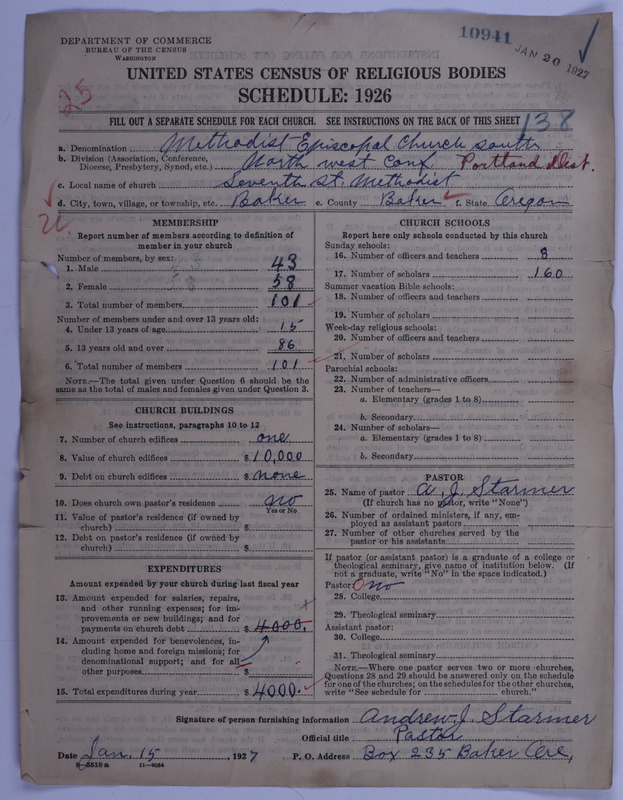 10941
JAN 20 1927
DEPARTMENT OF COMMERCE
BUREAU OF THE CENSUS
WASHINGTON
25
UNITED STATES CENSUS OF RELIGIOUS BODIES
SCHEDULE: 1926
FILL OUT A SEPARATE SCHEDULE FOR EACH CHURCH. SEE INSTRUCTIONS ON THE BACK OF THIS SHEET
138
a. Denomination Methodist Episcopal Church South
b. Division (Association, Conference, Diocese, Presbytery, Synod, etc.) North west Conf. Portland Dist.
c. Local name of church Seventh St. Methodist
d. City, town, village, or township, etc. Baker e. County Baker f. State Oregon
MEMBERSHIP
Report number of members according to definition of
member in your church
Number of members, by sex:
1. Male 43
2. Female 58
3. Total number of members 101
Number of members under and over 13 years old:
4. Under 13 years of age 15
5. 13 years old and over 86
6. Total number of members 101
NOTE.—The total given under Question 6 should be
same as the total of males and females given under Question 3.
CHURCH BUILDINGS
See instructions, paragraphs 10 to 12
7. Number of church edifices one
8. Value of church edifices $10,000
9. Debt on church edifices $ none
10. Does church own pastor's residence no
Yes or No
11. Value of pastor's residence (if owned by
church) $
12. Debt on pastor's residence (if owned by
church) $
EXPENDITURES
Amount expended by your church during last fiscal year
13. Amount expended for salaries, repairs,
and other running expenses; for im-
provements or new buildings; and for
payments on church debt $ 4000.
14. Amount expended for benevolences, in-
cluding home and foreign missions; for
denominational support; and for all
other purposes $
15. Total expenditures during year $ 4000.
CHURCH SCHOOLS
Report here only schools conducted by this church
Sunday schools:
16. Number of officers and teachers 8
17. Number of scholars 160
Summer vacation Bible schools:
18. Number of officers and teachers
19. Number of scholars
Week-day religious schools:
20. Number of officers and teachers
21. Number of scholars
Parochial schools:
22. Number of administrative officers
23. Number of teachers—
a. Elementary (grades 1 to 8)
b. Secondary
24. Number of scholars—
a. Elementary (grades 1 to 8)
b. Secondary
PASTOR
25. Name of pastor A. J. Starmer
(If church has no pastor, write "None")
26. Number of ordained ministers, if any, em-
ployed as assistant pastors
27. Number of other churches served by the
pastor or his assistants
If pastor (or assistant pastor) is a graduate of a college or
theological seminary, give name of institution below. (If
not a graduate, write "No" in the space indicated.)
Pastor: no
28. College
29. Theological seminary
Assistant pastor:
30. College
31. Theological seminary
NOTE.—Where one pastor serves two or more churches,
Questions 28 and 29 should be answered only on the schedule
for one of the churches; on the schedules for the other churches,
write "See schedule for church."
Signature of person furnishing information Andrew J. Starmer
Official title Pastor
Date Jan. 15, 1927 P. O. Address Box 235 Baker Ore,
8-5518a 11-9084